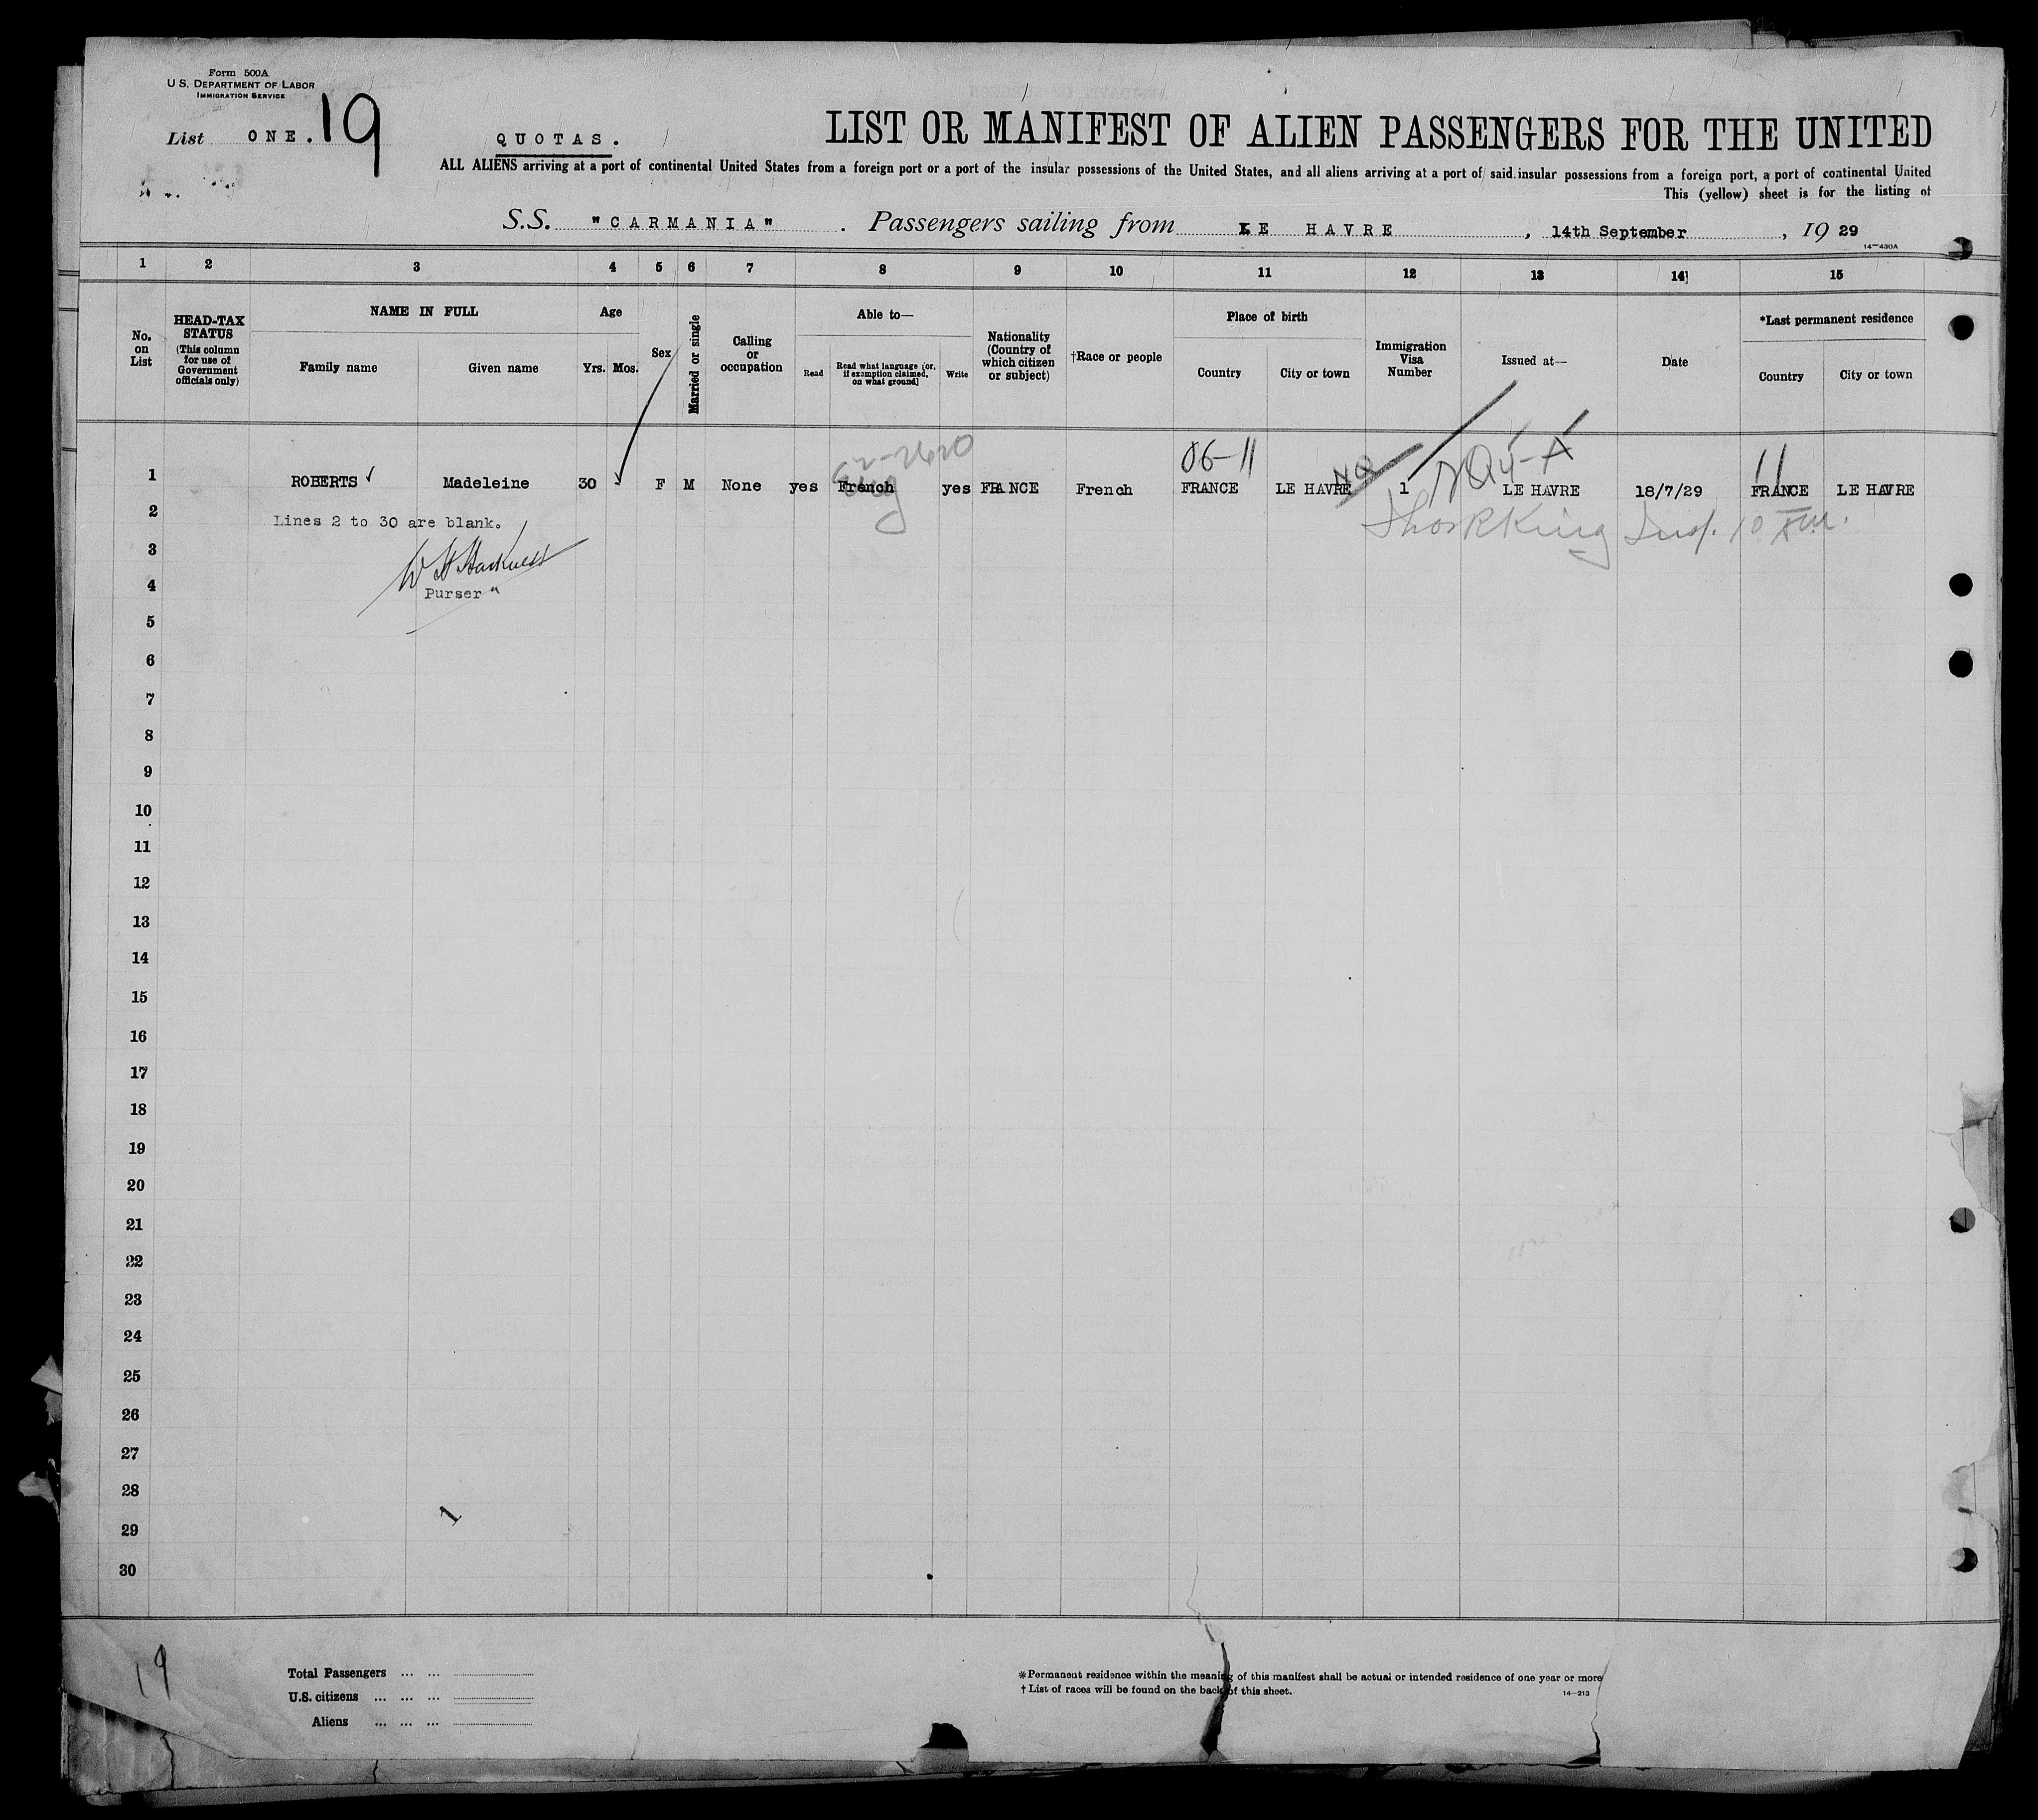 Form 500A
U.S. DEPARTMENT OF LABOR
IMMIGRATION SERVICE
List ONE. 19
QUOTAS.
LIST OR MANIFEST OF ALIEN PASSENGERS FOR THE UNITED
ALL ALIENS arriving at a port of continental United States from a foreign port or a port of the insular possessions of the United States, and all aliens arriving at a port of said insular possessions from a foreign port, a port of continental United
This (yellow) sheet is for the listing of
S.S. "CARMANIA" . Passengers sailing from LE HAVRE , 14th September , 19 29
14—430A
1 2 3 4 5 6 7 8 9 10 11 12 13 14 15
No. on List
HEAD-TAX STATUS (This column for use of Government officials only)
NAME IN FULL
Family name Given name
Age
Yrs. Mos.
Sex
Married or single
Calling or occupation
Able to—
Read Read what language (or, if exemption claimed, on what ground) Write
Nationality (Country of which citizen or subject)
†Race or people
Place of birth
Country City or town
Immigration Visa Number
Issued at—
Date
*Last permanent residence
Country City or town
06-11 11
1 ROBERTS Madeleine 30 F M None yes French yes FRANCE French FRANCE LE HAVRE NQ 1 LE HAVRE 18/7/29 FRANCE LE HAVRE
2 Lines 2 to 30 are blank.
3
4 Purser
5
6
7
8
9
10
11
12
13
14
15
16
17
18
19
20
21
22
23
24
25
26
27
28
29
30
1
19
Total Passengers ... ...
U.S. citizens ... ... ...
Aliens ... ... ...
*Permanent residence within the meaning of this manifest shall be actual or intended residence of one year or more
† List of races will be found on the back of this sheet.
14—213